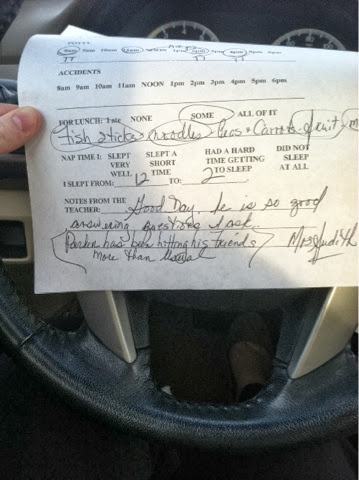 POTTY
8am 9am 10am 11am NOON 1pm 2pm 3pm 4pm 5pm 6pm
ACCIDENTS
8am 9am 10am 11am NOON 1pm 2pm 3pm 4pm 5pm 6pm
FOR LUNCH: I ate NONE SOME ALL OF IT
Fish sticks, noodles, Peas & Carrots, fruit,
NAP TIME: I: SLEPT SLEPT A HAD A HARD DID NOT
VERY SHORT TIME GETTING SLEEP
WELL TIME TO SLEEP AT ALL
I SLEPT FROM: 12 TO: 2
NOTES FROM THE
TEACHER: Good Day, he is so good
answering questions I ask.
Parker has been hitting his friends
more than usual Mrs Judith